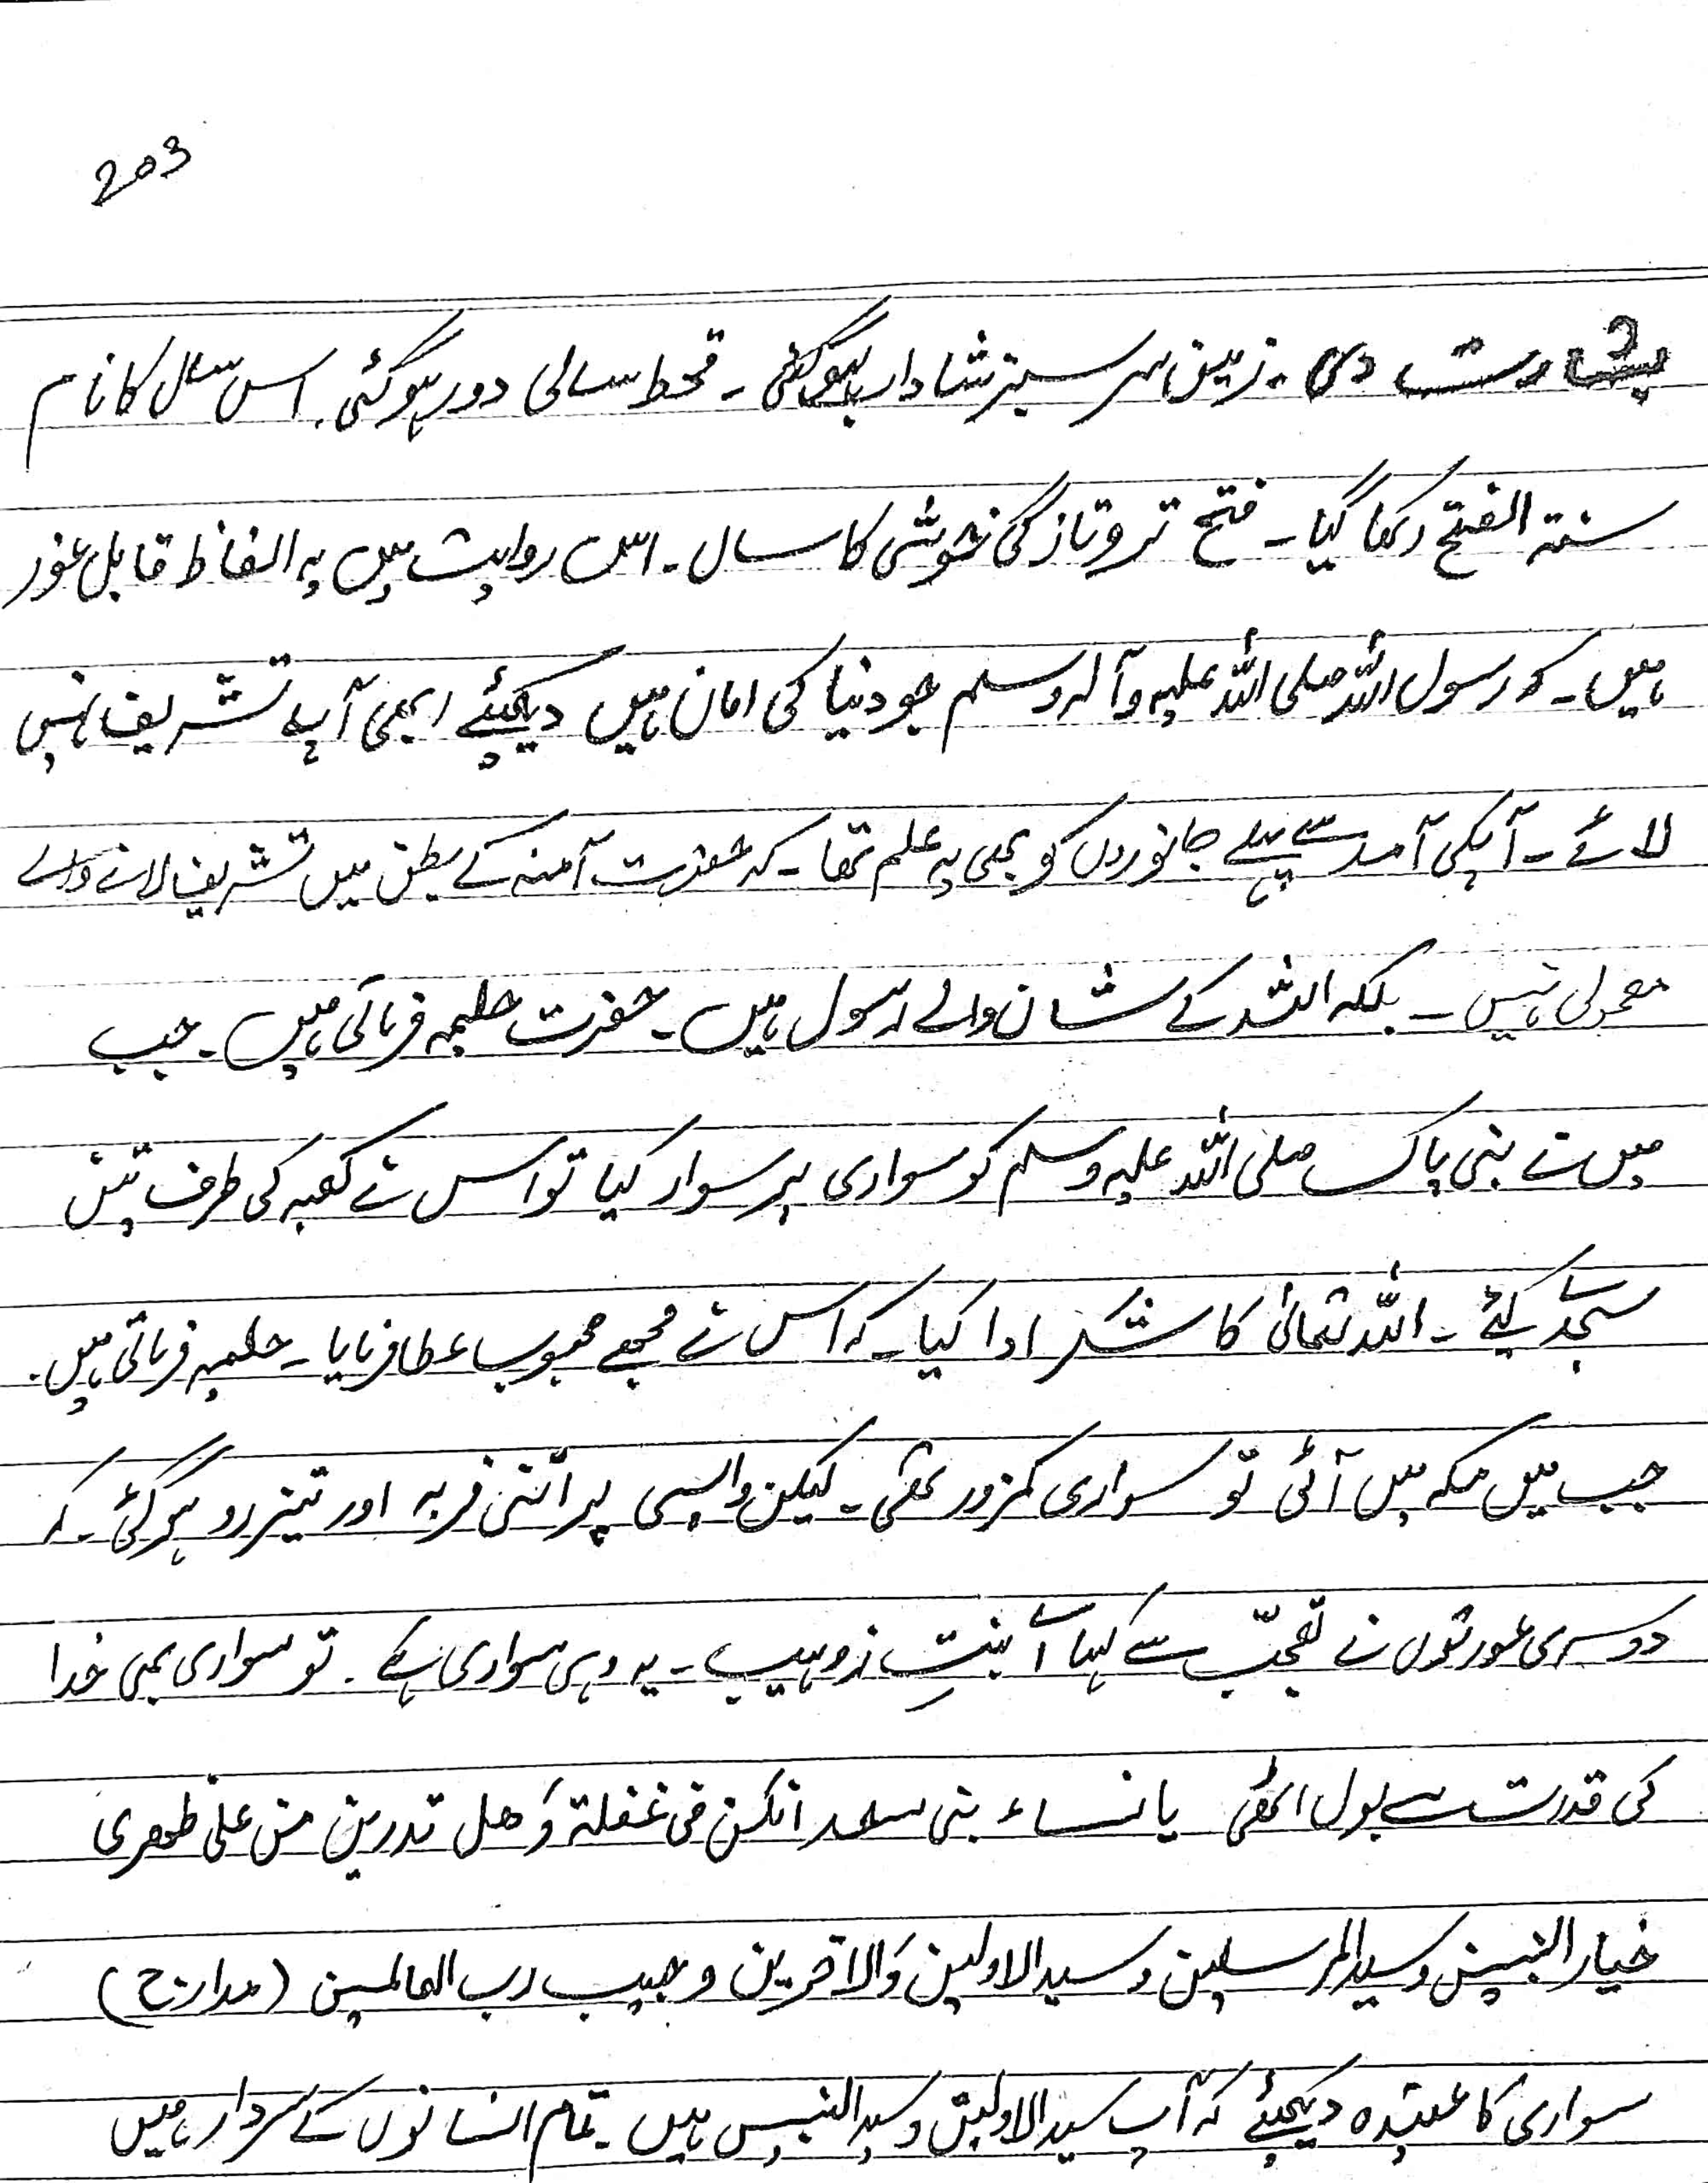 203
بشارت دی۔ زمین سر سبز شاداب ہوگئی۔ قحط سالی دور ہوگئی۔ اس سال کا نام
سنۃ الفتح رکھا گیا۔ فتح تروتازگی خوشی کا سال۔ اس روایت میں یہ الفاظ قابل غور
ہیں۔ کہ رسول اللہ صلی اللہ علیہ وآلہ وسلم جو دنیا کی امان ہیں دیکھئے ابھی آپ تشریف نہیں
لائے۔ آپکی آمد سے پہلے جانوروں کو بھی یہ علم تھا۔ کہ حضرت آمنہ کے بطن میں تشریف لانے والے
معمولی نہیں۔ بلکہ اللہ کے شان والے رسول ہیں۔ حضرت حلیمہ فرماتی ہیں۔ جب
میں نے نبی پاک صلی اللہ علیہ وسلم کو سواری پر سوار کیا تو اس نے کعبہ کی طرف تین
سجدے کیئے۔ اللہ تعالیٰ کا شکر ادا کیا۔ کہ اس نے مجھے محبوب عطا فرمایا۔ حلیمہ فرماتی ہیں۔
جب میں مکہ میں آئی تو سواری کمزور تھی۔ لیکن واپسی پر اتنی فربہ اور تیز رو ہوگئی۔ کہ
دوسری عورتوں نے تعجّب سے کہا اے بنتِ زوہیب۔ یہ وہی سواری ہے۔ تو سواری بھی خدا
کی قدرت سے بول اٹھی یا نساء بنی سعد انکن فی غفلۃ وَ ھل تدرین من علیٰ ظھری
خیار النبین و سید المرسلین و سید الاولین وَالاخرین و حبیب رب العالمین (مدارج)
سواری کا عقیدہ دیکھئے کہ آپ سید الاولین و سید النبیین ہیں۔ تمام انسانوں کے سردار ہیں